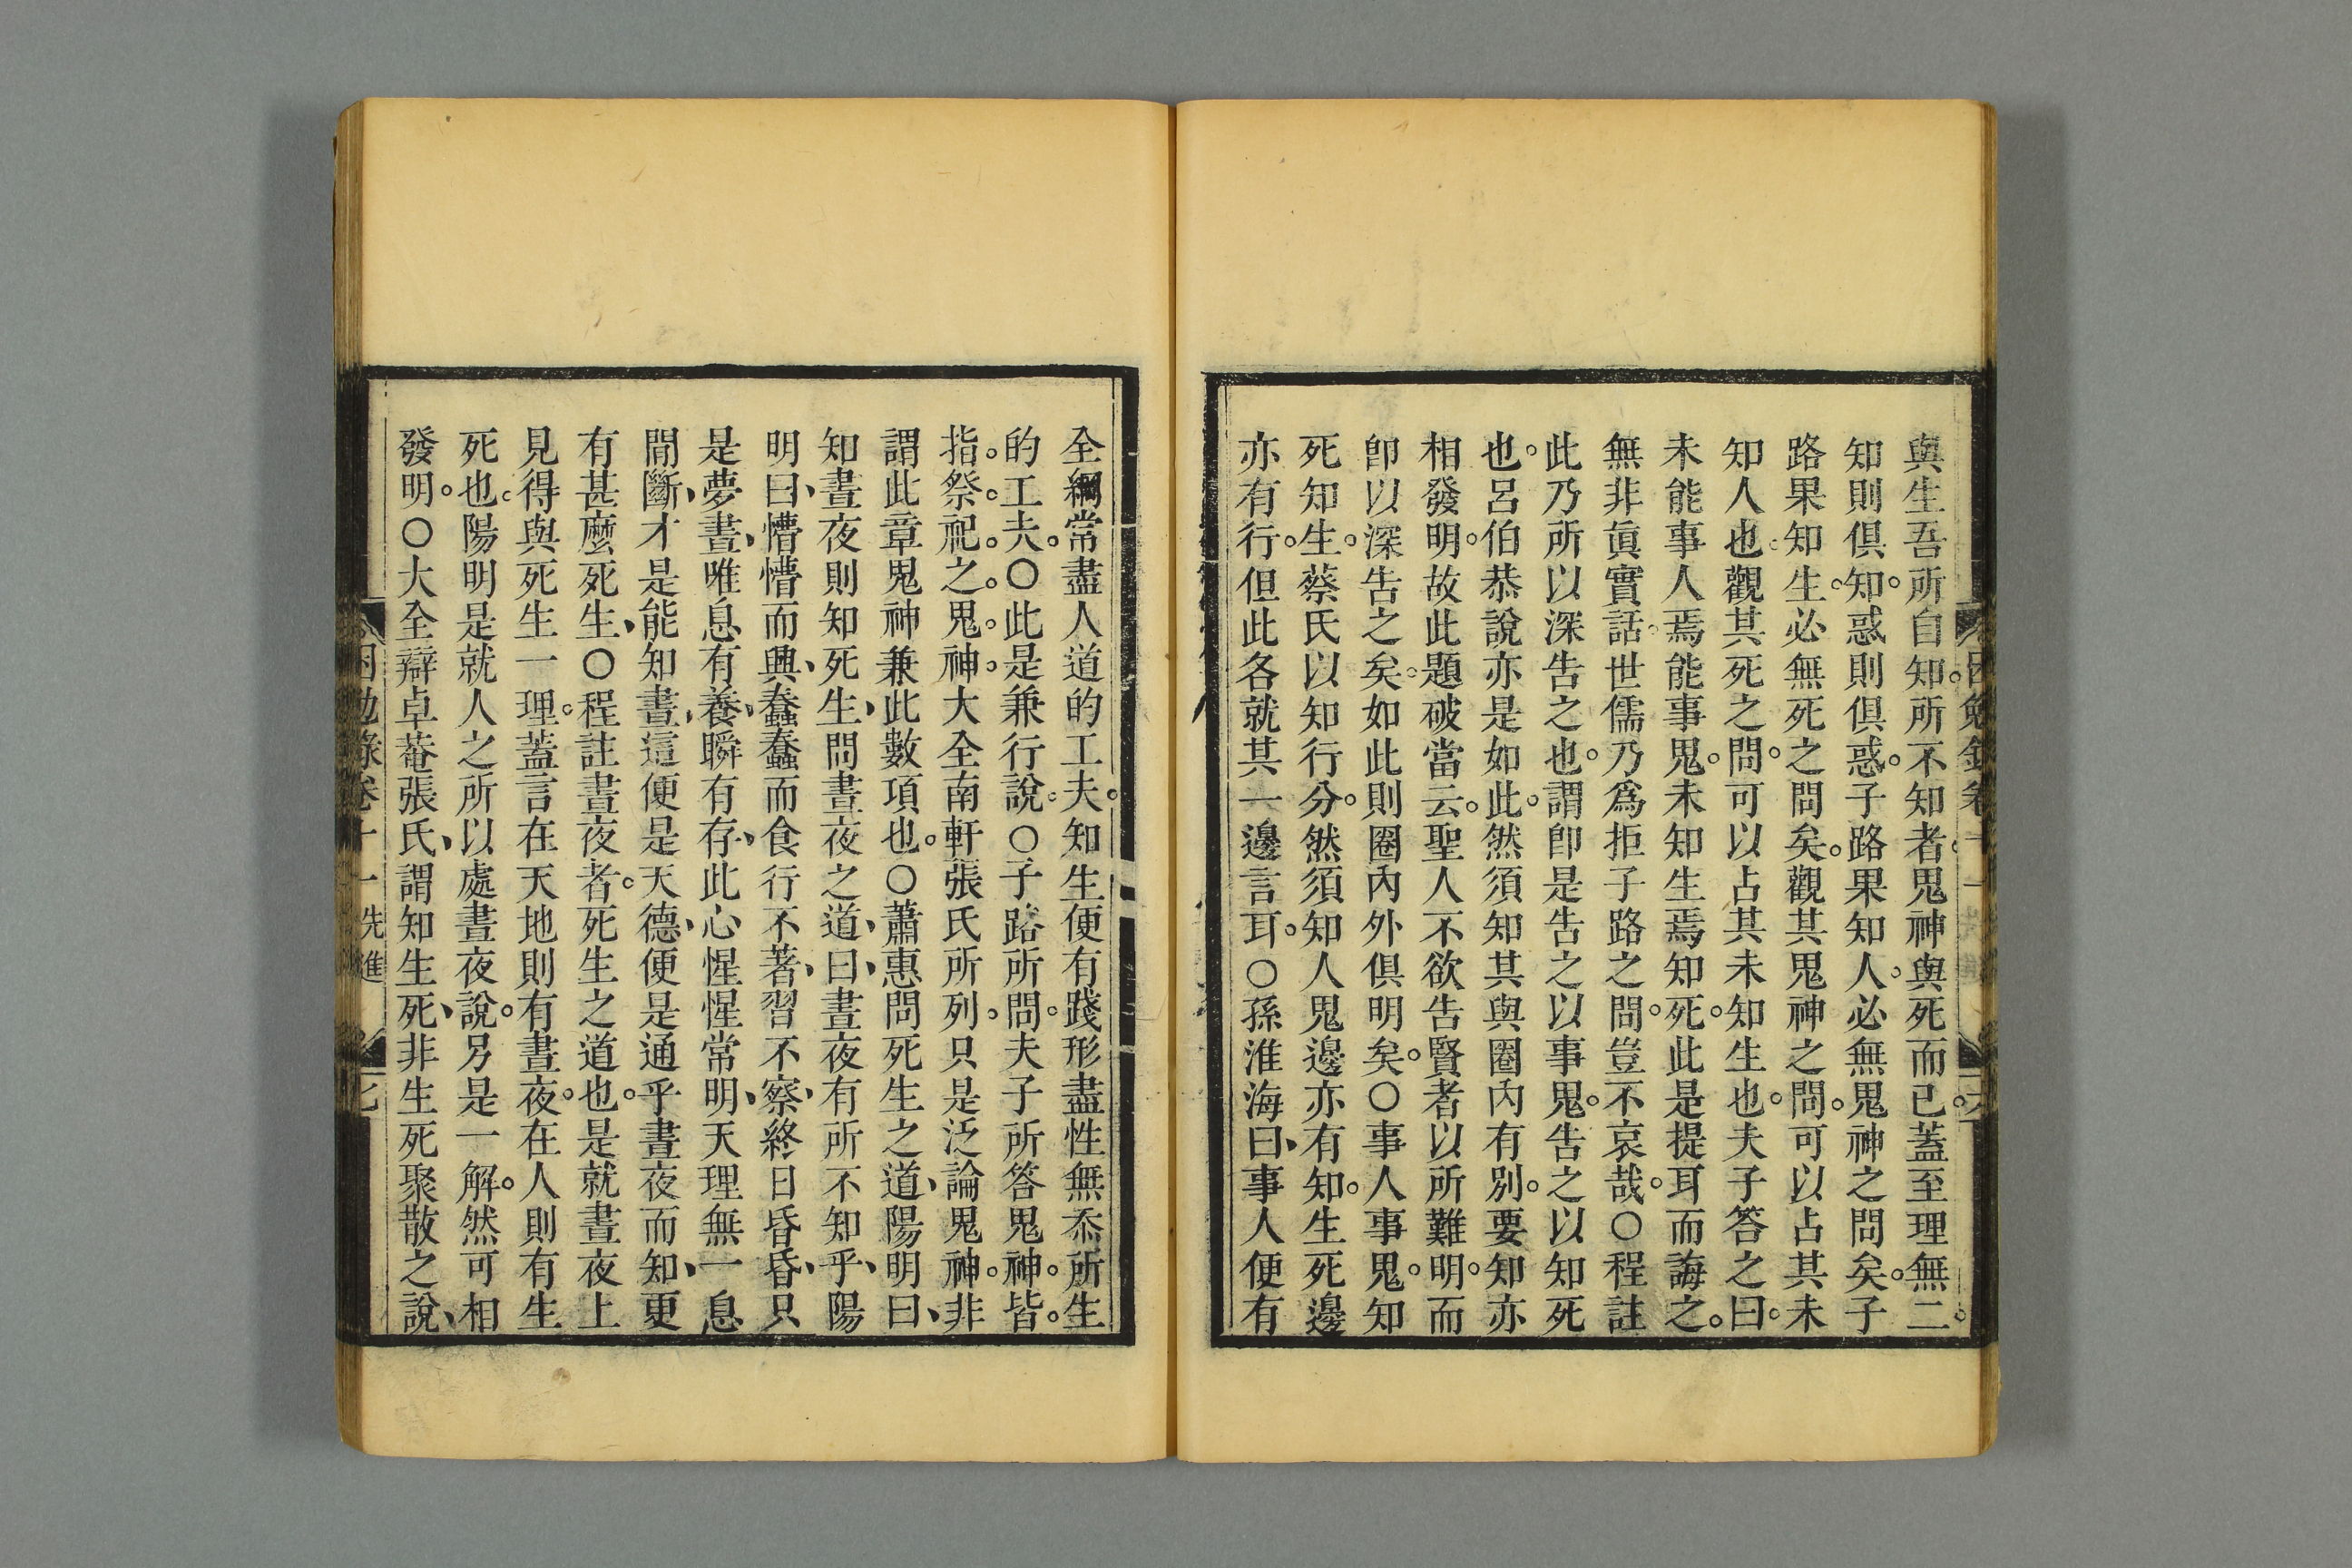 與生吾所自知。所不知者。鬼神與死而已。蓋至理無二。
知則俱知。惑則俱惑。子路果知人。必無鬼神之問矣。子
路果知生。必無死之問矣。觀其鬼神之問。可以占其未
知人也。觀其死之問。可以占其未知生也。夫子答之曰。
未能事人。焉能事鬼。未知生。焉知死。此是提耳而誨之。
無非眞實話。世儒乃爲拒子路之問。豈不哀哉。○程註
此乃所以深告之也。謂卽是告之以事鬼。告之以知死
也。呂伯恭說亦是如此。然須知其與圈內有別。要知亦
相發明。故此題破當云。聖人不欲告賢者以所難明。而
卽以深告之矣。如此則圈內外俱明矣。○事人事鬼。知
死知生。蔡氏以知行分。然須知人鬼邊亦有知。生死邊
亦有行。但此各就其一邊言耳。○孫淮海曰、事人便有
全綱常盡人道的工夫。知生便有踐形盡性無忝所生
的工夫。○此是兼行說。○子路所問。夫子所答鬼神。皆。
指。祭。祀。之。鬼。神。大全南軒張氏所列。只是泛論鬼神。非
謂此章鬼神兼此數項也。○蕭惠問死生之道、陽明曰、
知晝夜則知死生、問晝夜之道、曰、晝夜有所不知乎、陽
明曰、懵懵而興、蠢蠢而食行不著、習不察、終日昏昏、只
是夢晝、唯息有養、瞬有存、此心惺惺常明、天理無一息
間斷、才是能知晝、這便是天德、便是通乎晝夜而知、更
有甚麼死生、○程註晝夜者。死生之道也。是就晝夜上
見得與死生一理。蓋言在天地則有晝夜。在人則有生
死也。陽明是就人之所以處晝夜說。另是一解。然可相
發明。○大全辯卓菴張氏、謂知生死、非生死聚散之說、
困勉錄卷十一 先進 七